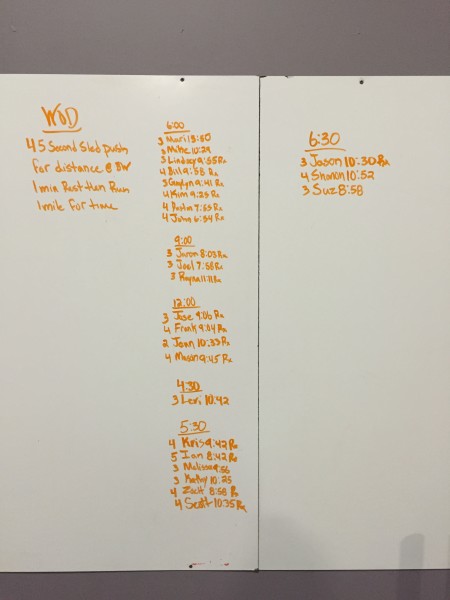 WOD
45 Second Sled push
for distance @ BW
1 min Rest then Run
1 mile for time
6:00
3 Mari 13:50
3 Mike 10:29
3 Lindsay 9:55 Rx
4 Bill 9:58 Rx
3 9:41 Rx
4 Kim 9:25 Rx
4 7:55 Rx
4 John 6:54 Rx
9:00
3 Jaron 8:03 Rx
3 Joel 7:58 Rx
3 Rayna 11:11 Rx
12:00
3 Jose 9:06 Rx
4 Frank 9:04 Rx
2 Jenn 10:33 Rx
4 Mason 9:45 Rx
4:30
3 Levi 10:42
5:30
4 Kris 9:42 Rx
5 Ian 8:42 Rx
3 Melissa 9:56
3 Kathy 10:25
4 Zach 8:58 Rx
4 Scott 10:35 Rx
6:30
3 Jason 10:30 Rx
4 Shanon 10:52
3 Suz 8:58